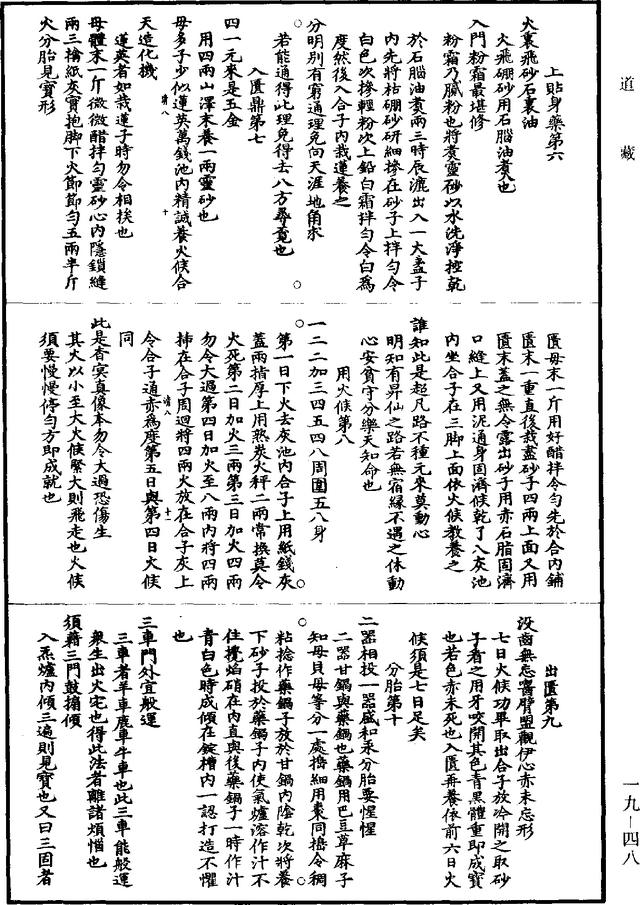 道藏
上貼身藥第六
火裏飛砂石裏油
火飛硼砂用石腦油煑也
入門粉霜最堪修
粉霜乃膩粉也將煑靈砂以水洗淨控乾
於石腦油煑兩三時辰漉出入一大盞子
內先將枯硼砂研細摻在砂子上拌勻令
白色次摻輕粉次上鉛白霜拌勻令白爲
度然後入合子內栽蓮養之
分明別有窮通理免向天涯地角求
若能通得此理免得去八方尋覓也
入匱鼎第七
四一元來是五金
用四兩山澤末養一兩靈砂也
母多子少似蓮英萬錢池內精誠養火候合
清八
十
天造化機
蓮英者如栽蓮子時勿令相挨也
母體末一斤微微醋拌勻靈砂心內隱鎖縫
兩三擒紙灰實抱脚下火節節勻五兩半斤
火分胎見寶形
匱母末一斤用好醋拌令勻先於合內鋪
匱末一重直後栽盡砂子四兩上面又用
匱末蓋之無令露出砂子用赤石脂固濟
口縫上又用泥通身固濟候乾了入灰池
內坐合子在三脚上面依火候教養之
誰知此是超凡路不種元來莫動心
明知有昇仙之路若無宿緣不遇之休動
心安貧守分樂天知命也
用火候第八
一二二加三四五四八周圍五八身
第一日下火去灰池內合子上用紙錢灰
蓋兩指厚上用熟炭火秤二兩常換莫令
火死第二日加火三兩第三日加火四兩
勿令大過第四日加火至八兩內將四兩
揷在合子周迴將四兩火放在合子灰上
令合子通赤爲度第五日與第四日火候
清八
十一
同
此是杳冥真像本勿令大過恐傷生
其火以小至大火候緊大則飛走也火候
須要慢慢停勻方即成就也
出匱第九
沒齒無忘齧臂盟觀伊心赤未忘形
七日火候功畢取出合子放冷開之取砂
子看之用牙咬開其色青黑體重即成寶
也若色赤未死也入匱再養依前六日火
候須是七日足矣
分胎第十
二器相投一器盛和汞分胎要惺惺
二器甘鍋與藥鍋也藥鍋用巴豆草麻子
知母貝母等分一處擣細用棗同擣令稠
粘捻作藥鍋子放於甘鍋內陰乾次將養
下砂子投於藥鍋子內使氣爐溶作汁不
住攪焰硝在內直與後藥鍋子一時作汁
青白色時成傾在錠槽內一認打造不懼
也
三車門外宜般運
三車者羊車鹿車牛車也此三車能般運
衆生出火宅也得此法者離諸煩惱也
須藉三門鼓搧傾
入炁爐內傾三遍則見寶也又曰三固者
一九—四八